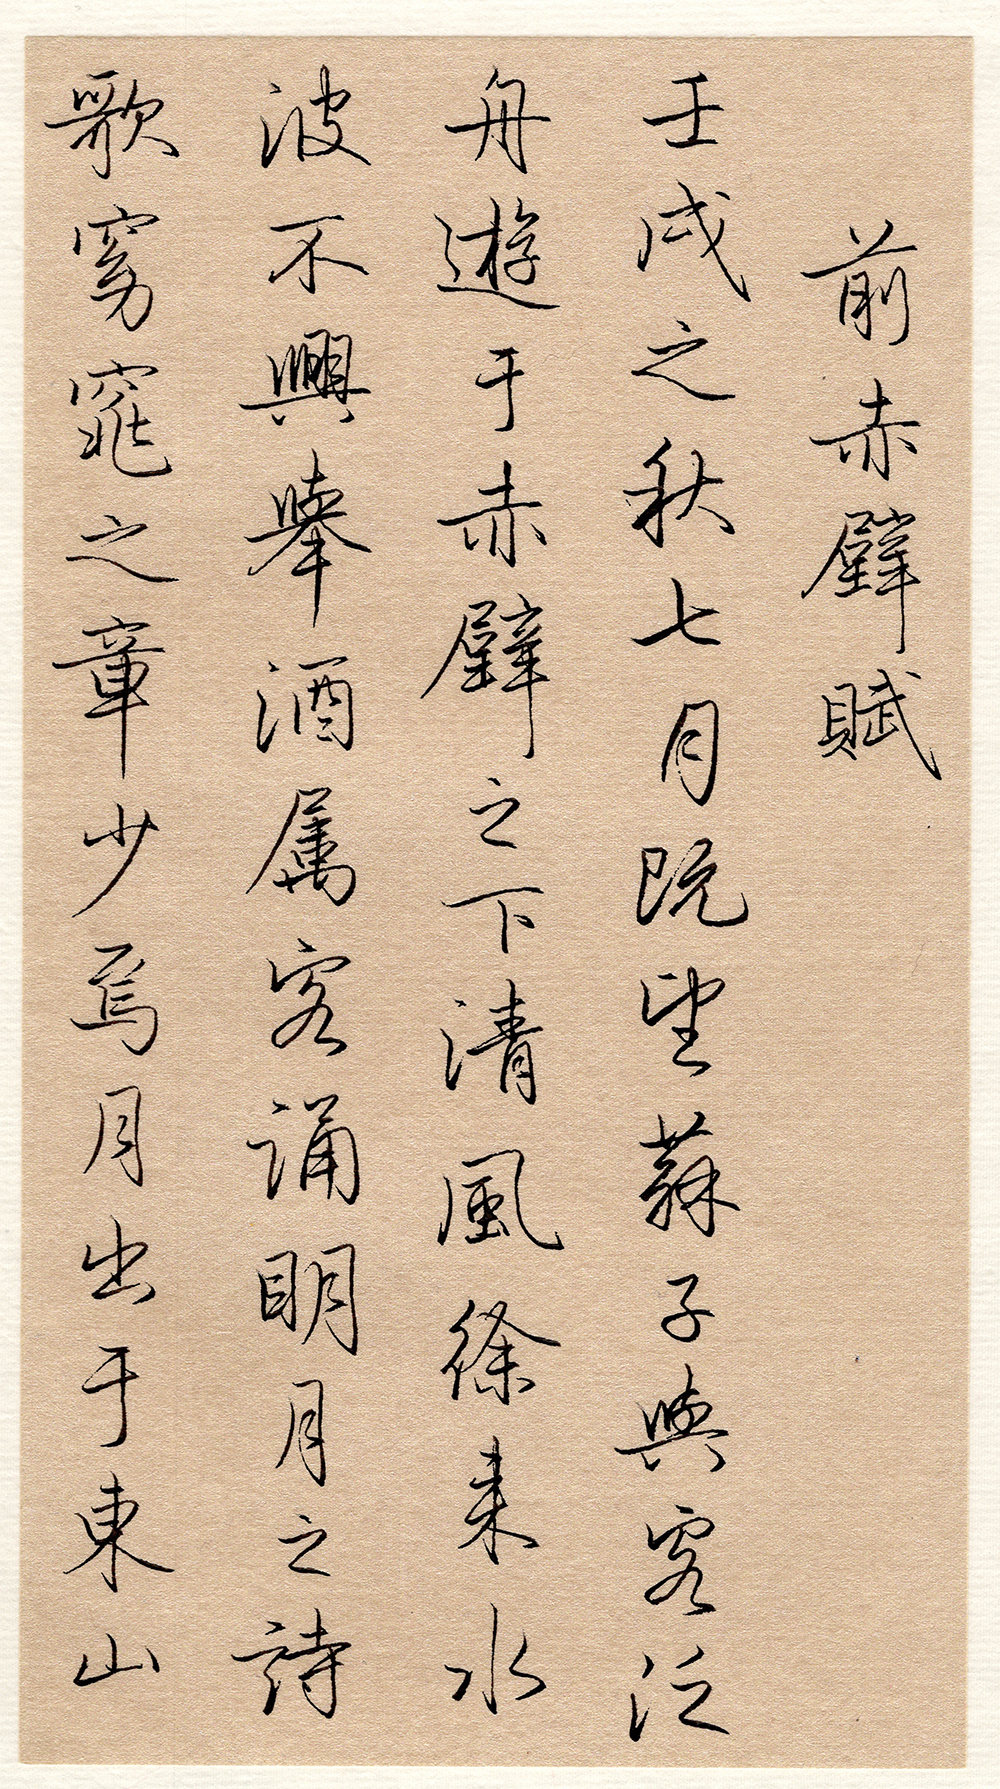 前赤壁賦
壬戌之秋七月既望蘇子與客泛
舟遊于赤壁之下清風徐来水
波不興舉酒属客誦明月之詩
歌窈窕之章少焉月出于東山